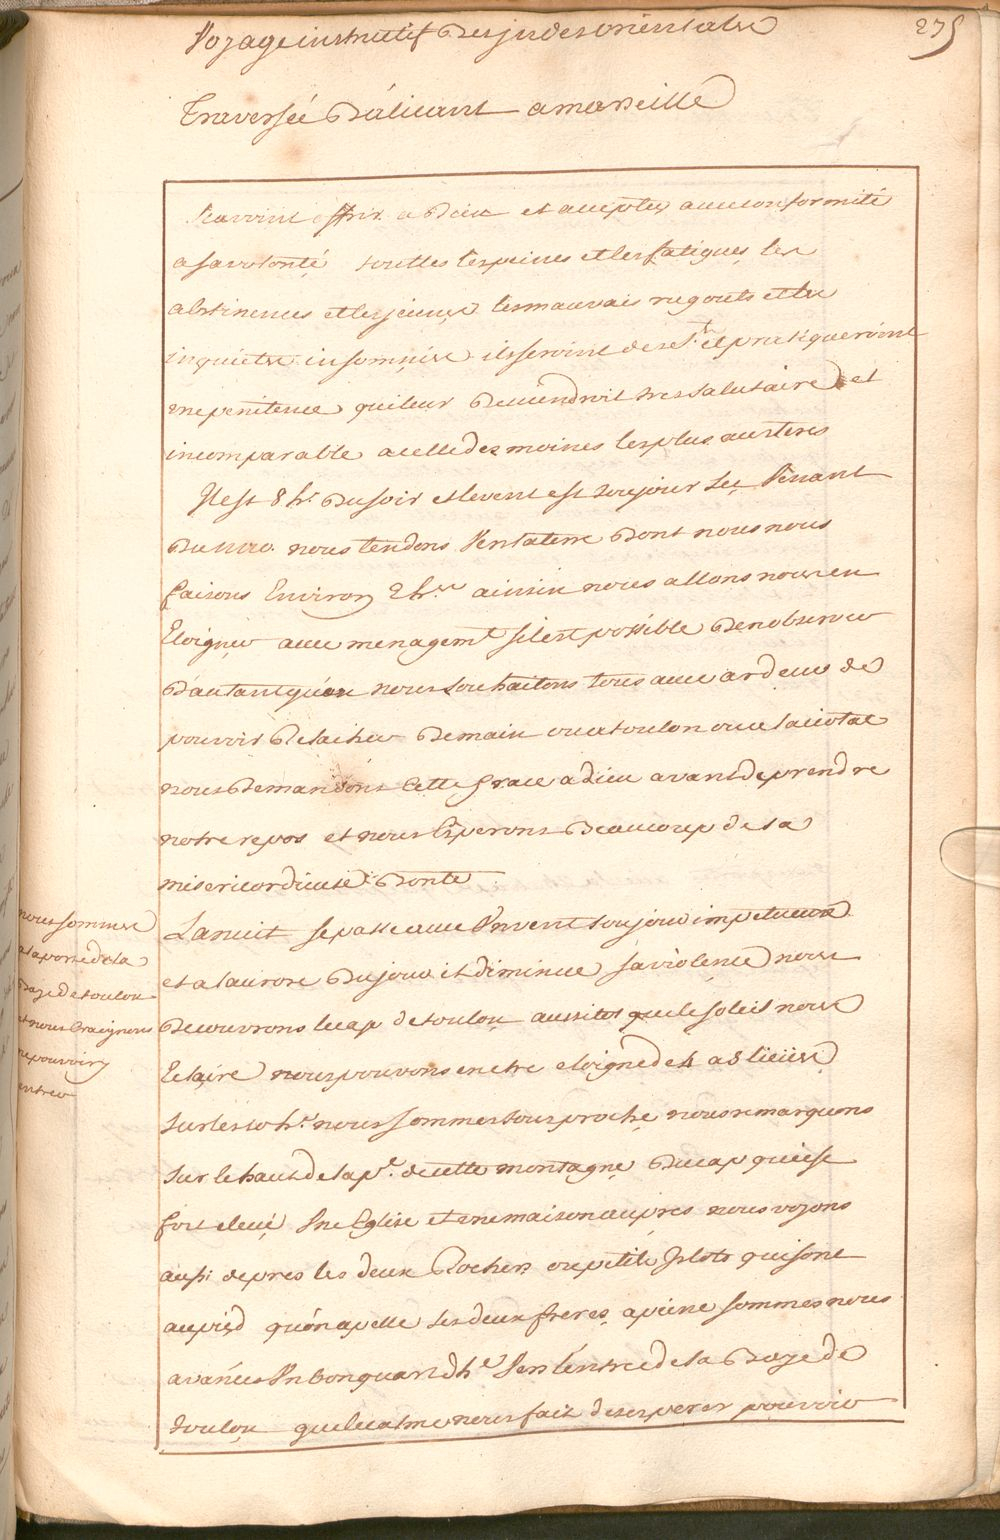 Voyage instructif Des jndes orientales
275
Traversée D'alicant a marseille
scavoint offrir a Dieu et accepter avec conformité
a sa volonté touttes les peines et les fatigues les
abstinences et les jeunes les mauvais ragouts et les
inquietes insomnies ils seroint des s.ts et pratiqueroint
une penitence qui leur Deviendroit tres salutaire et
incomparable a celle des moines les plus austeres
Il est 8 h.s Du soir et le vent est toujour les Venant
Du nno. nous tendons Vers la terre Dont nous nous
faisons Environ 2 h.es ainsin nous allons nous en
Eloigner avec menagem.t s'il est possible D'en observer
D'autant qu'en nous souhaitons tous avec ardeur de
pouvoir Relacher Demain ou a toulon ou a la ciotat
nous Demandons Cette Grace a dieu avant de prendre
notre repos et nous Esperons Beaucoup de sa
misericordieuse Bonté
La nuit se passe avec Un vent toujour impetueux
et a l'aurore Du jour il diminue sa violence nous
Decouvrons le cap de toulon aussitot que le soleil nous
Eclaire nous pouvons en etre eloigné de 4 a 5 lieües
sur les 10 h.s nous sommes tous proche nous remarquons
sur le haut de la p.te de cette montagne Du cap qui est
fort elevé Une Eglise et une maison aupres nous voyons
aussi de pres les deux Rochers ou petits Jslots qui sont
au pied qu'on apelle les deux freres a peine sommes nous
avancés Un bon quard d'h.e Vers l'entrée de la Baye de
toulon que le calme nous fait desesperer pouvoir
nous sommes
a la porte de la
Baye de toulon
et nous Craignons
ne pouvoir y
entrer